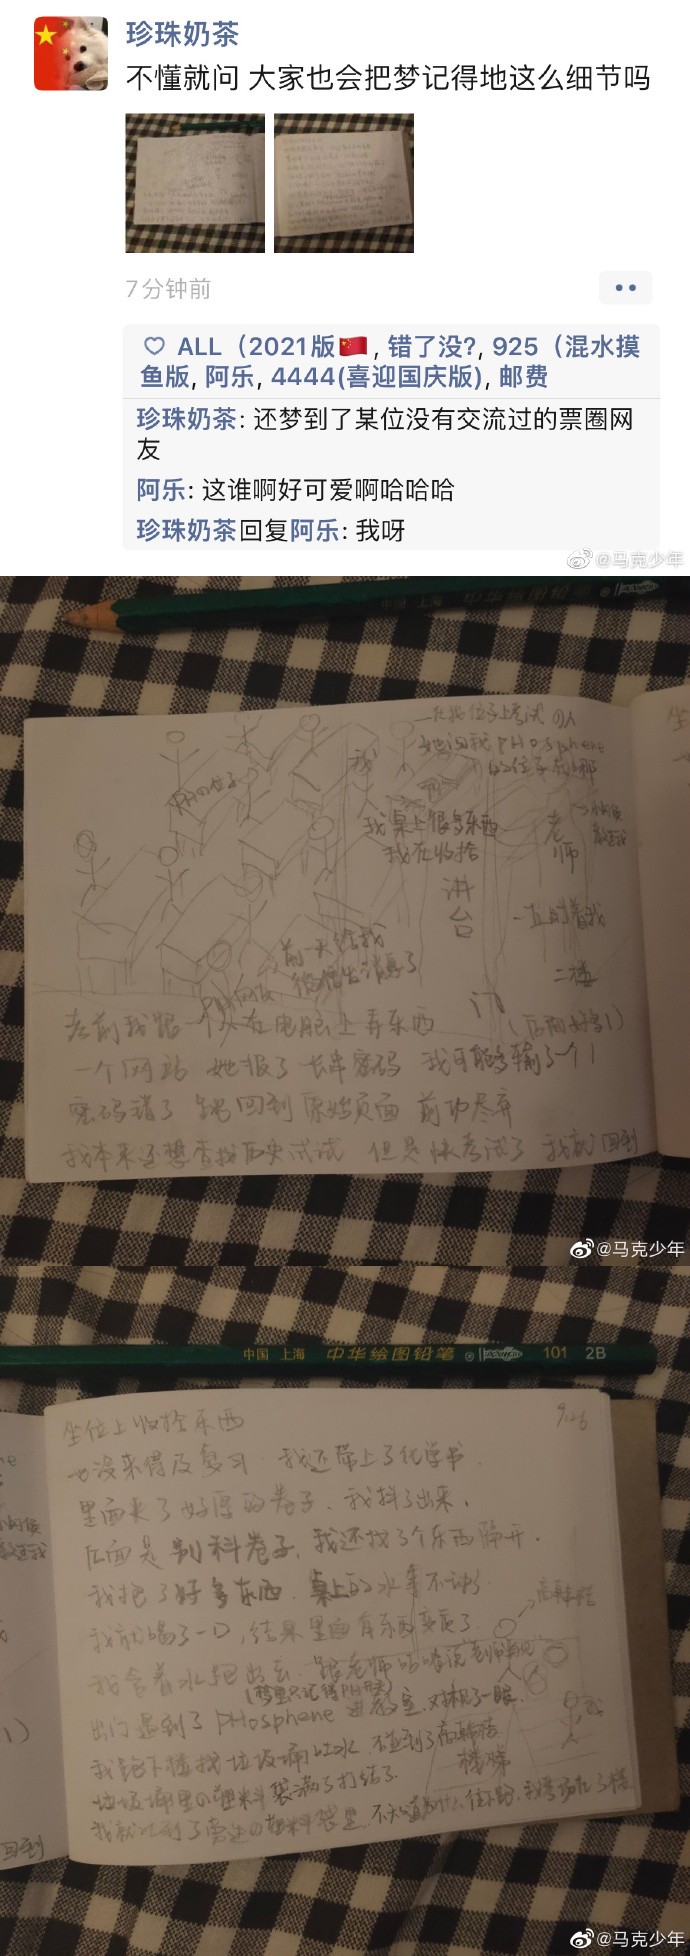 珍珠奶茶
不懂就问 大家也会把梦记得地这么细节吗
7分钟前
ALL（2021版🇨🇳, 错了没?, 925（混水摸
鱼版, 阿乐, 4444(喜迎国庆版), 邮费
珍珠奶茶: 还梦到了某位没有交流过的票圈网
友
阿乐: 这谁啊好可爱啊哈哈哈
珍珠奶茶回复阿乐: 我呀
@马克少年
中国 上海 中华绘图铅笔
在我位子上考试的人
她问我pHosphene
的位子在哪
我
PHの位子
我桌上很多东西
我在收拾
老师
讲台
一直盯着我
二楼
前一天给我
微信发消息了
PH网友
门
考前我跟一个人在电脑上弄东西
一个网站 她报了长串密码 我可能多输了一个1
密码错了 回到原始页面 前功尽弃
我本来还想查找历史试试 但是快考试了 我就回到
@马克少年
中国 上海 中华绘图铅笔 101 2B
9.26
坐位上收拾东西
也没来得及复习 我还带上了化学书
里面夹了好厚的卷子、我抖了出来、
后面是别科卷子、我还找了个东西隔开.
我抱了好多东西 桌上的水拿不动了
我就喝了一口, 结果里面有东西变质了
我含着水跑出去 跟老师
(梦里只记得PH开头)
出门遇到了pHosphene 进教室, 对视了一眼
我跑下楼找垃圾桶吐水
垃圾桶里の塑料袋满了打结了
我就吐到了旁边の塑料袋里
楼梯
我
@马克少年